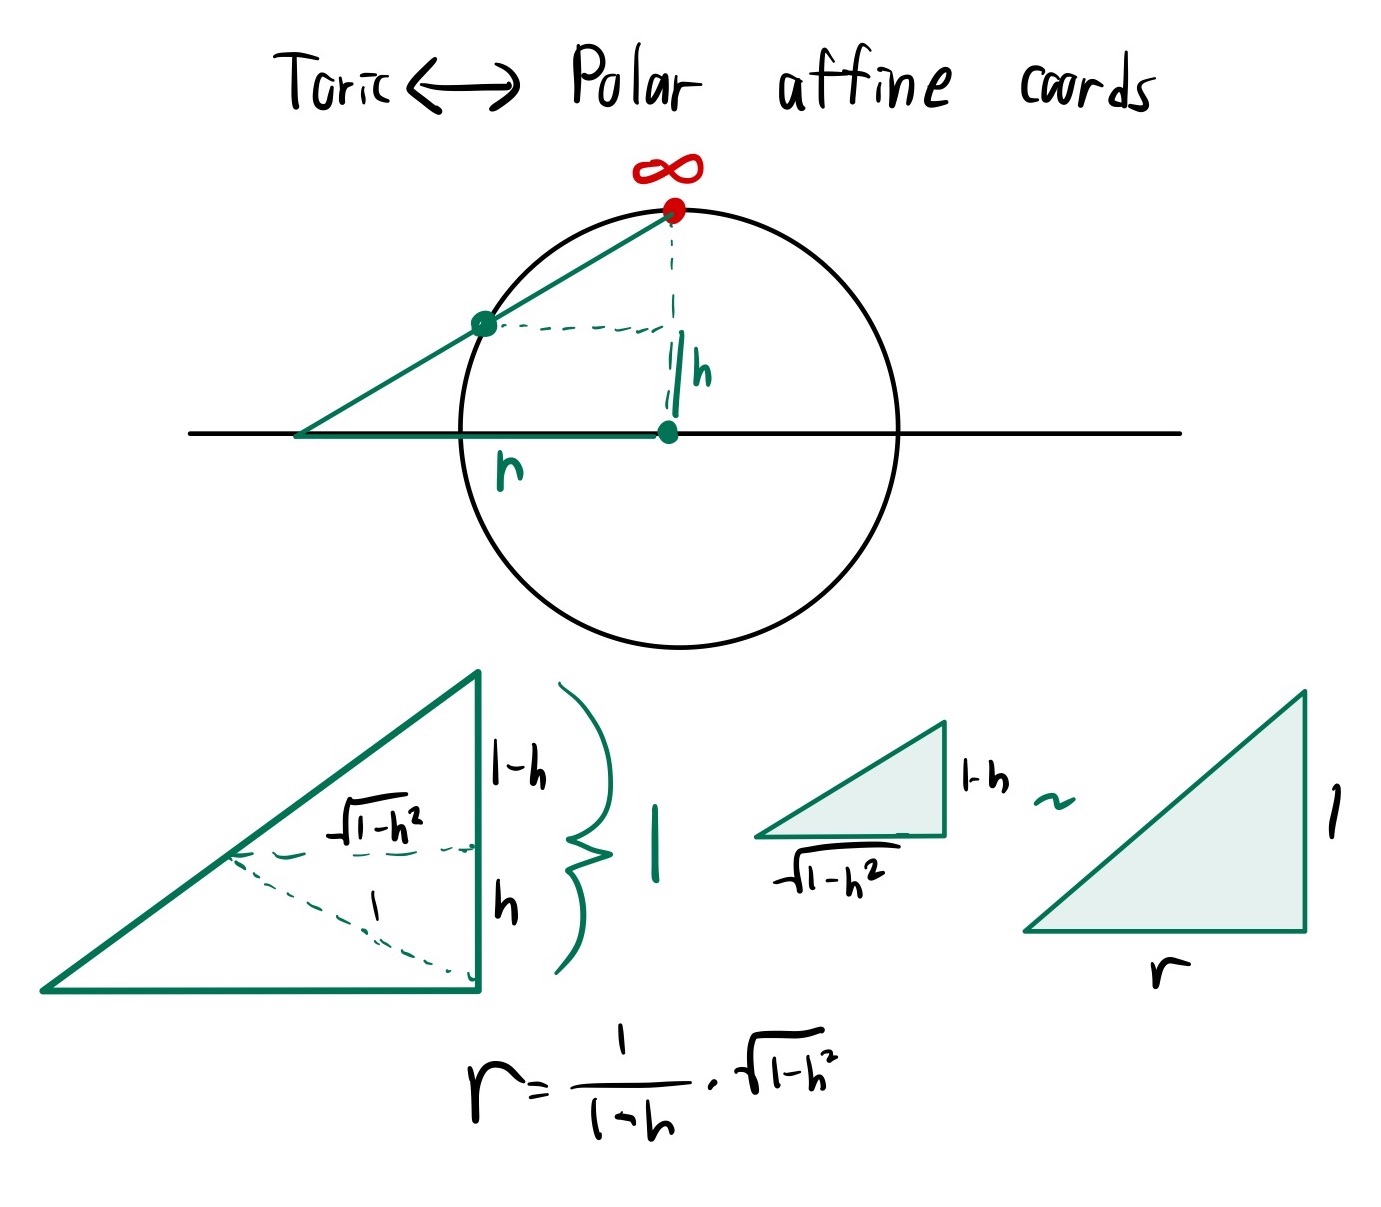 Toric ↔ Polar affine coords
∞
h
r
1-h
√(1-h²)
1
h
1
1-h
√(1-h²)
~
1
r
r = 1/(1-h) · √(1-h²)